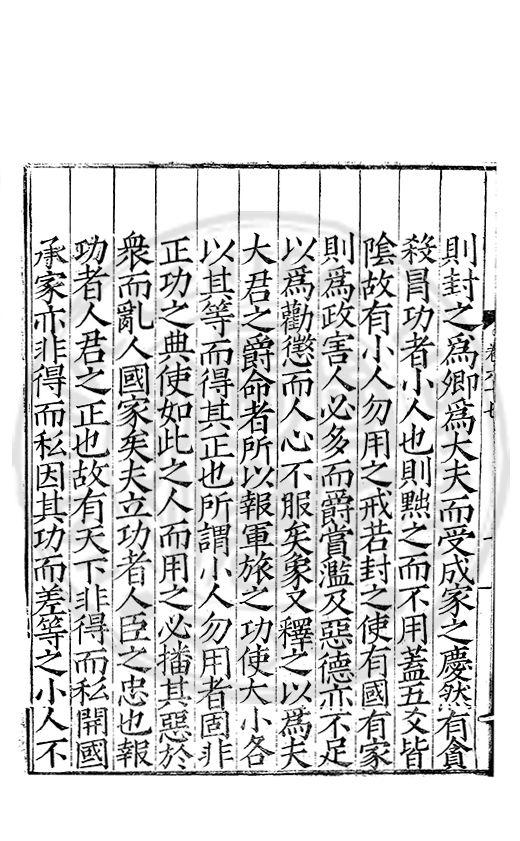 則封之為卿為大夫而受成家之慶然有貪
殺冒功者小人也則黜之而不用蓋五爻皆
陰故有小人勿用之戒若封之使有國有家
則為政害人必多而爵賞濫及惡德亦不足
以為勸懲而人心不服矣象又釋之以為夫
大君之爵命者所以報軍旅之功使大小各
以其等而得其正也所謂小人勿用者固非
正功之典使如此之人而用之必播其惡於
衆而亂人國家矣夫立功者人臣之忠也報
功者人君之正也故有天下非得而私開國
承家亦非得而私因其功而差等之小人不